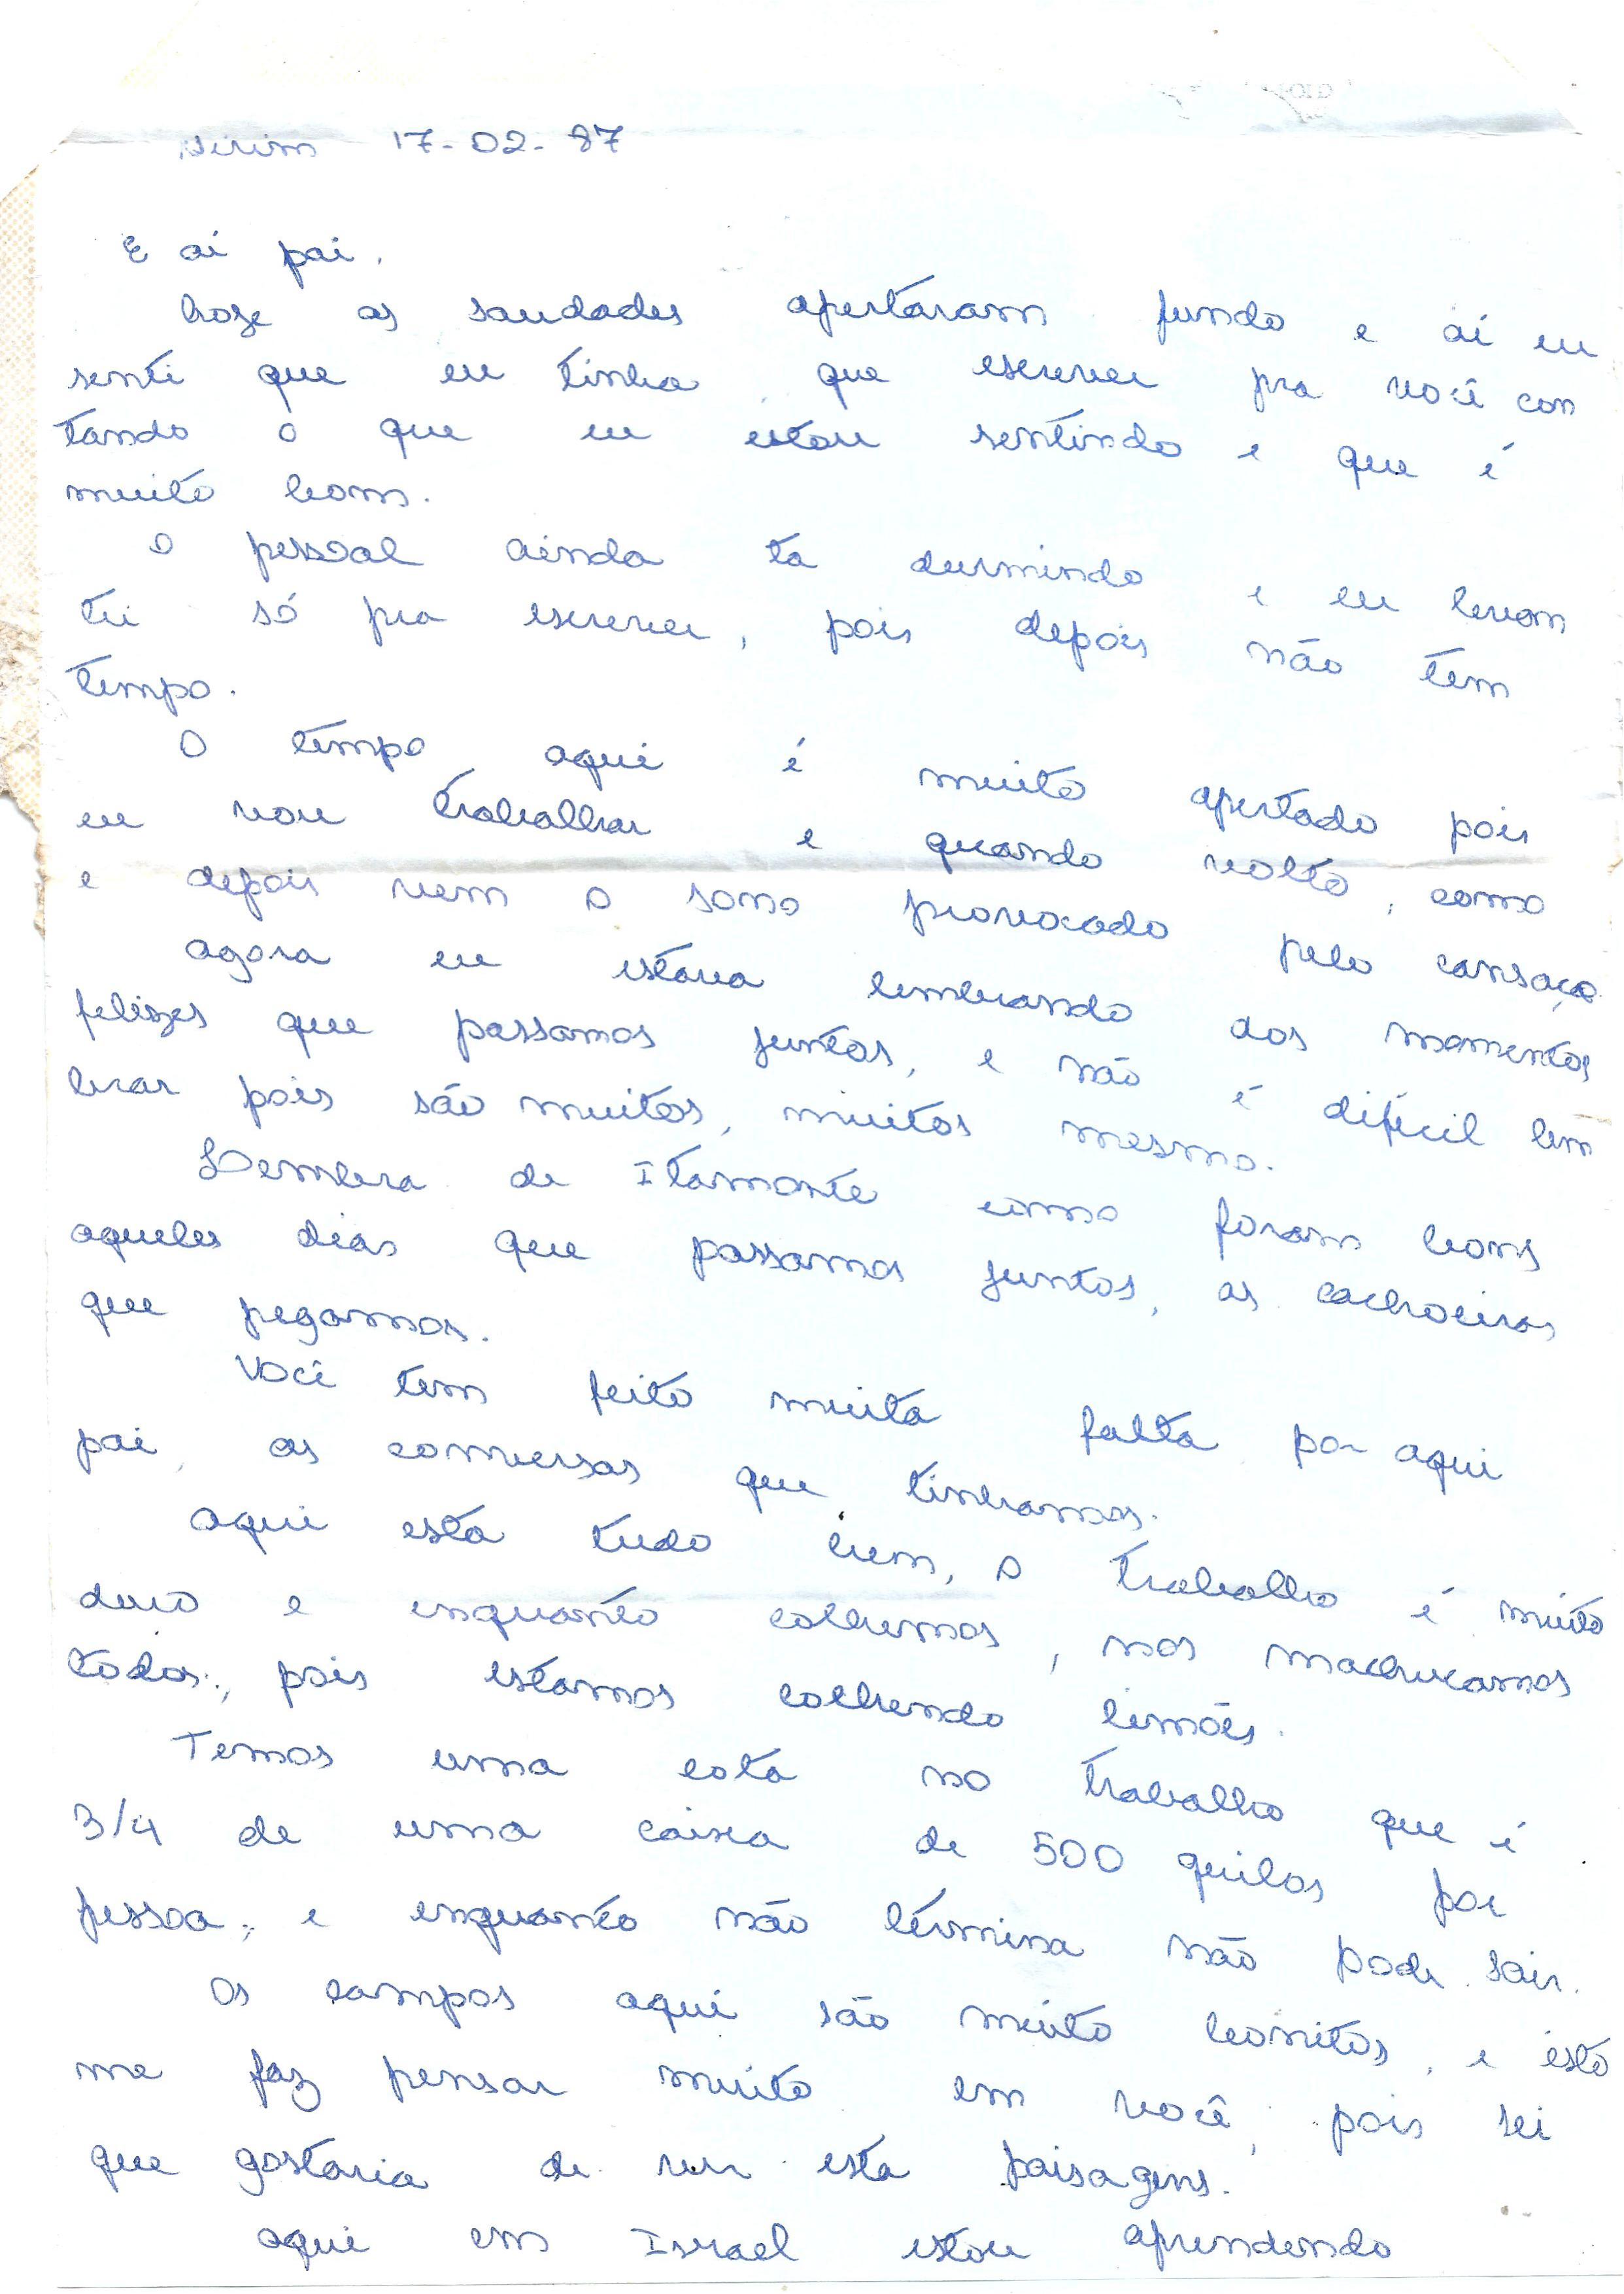 17-02-87
E aí pai.
hoje as saudades apertaram fundo e aí eu
senti que eu tinha que escrever pra você con
tando o que eu estou sentindo e que é
muito bom.
O pessoal ainda ta durmindo e eu levan
tei só pra escrever, pois depois não tem
tempo.
O tempo aqui é muito apertado pois
eu vou trabalhar e quando volto, como
e depois vem o sono provocado pelo cansaço.
agora eu estava lembrando dos momentos
felizes que passamos juntos, e não é difícil lem
brar pois são muitos, muitos mesmo.
Lembra de Itamonte como foram bons
aqueles dias que passamos juntos, as cachoeiras
que pegamos.
Você tem feito muita falta por aqui
pai, as conversas que tinhamos.
aqui esta tudo bem, o trabalho é muito
duro e enquanto colhemos, nos machucamos
todos, pois estamos colhendo limões.
Temos uma cota no trabalho que é
3/4 de uma caixa de 500 quilos por
pessoa, e enquanto não términa não pode sair.
Os campos aqui são muito bonitos, e isto
me faz pensar muito em você, pois sei
que gostaria de ver esta paisagens.
aqui em Israel estou aprendendo